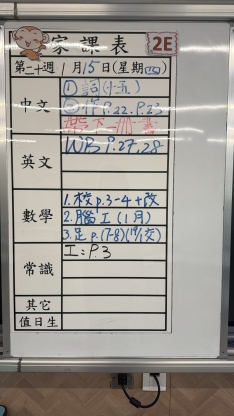 家課表 2E
第二十週 1月15日(星期四)
中文
① 詞(十五)
② 作P.22、P.23
帶下冊書
英文
WB P.27,28
數學
1.校p.3-4+改
2.腦工(1月)
3.足p.(7-8)(19/1交)
常識
工:P.3
其它
值日生